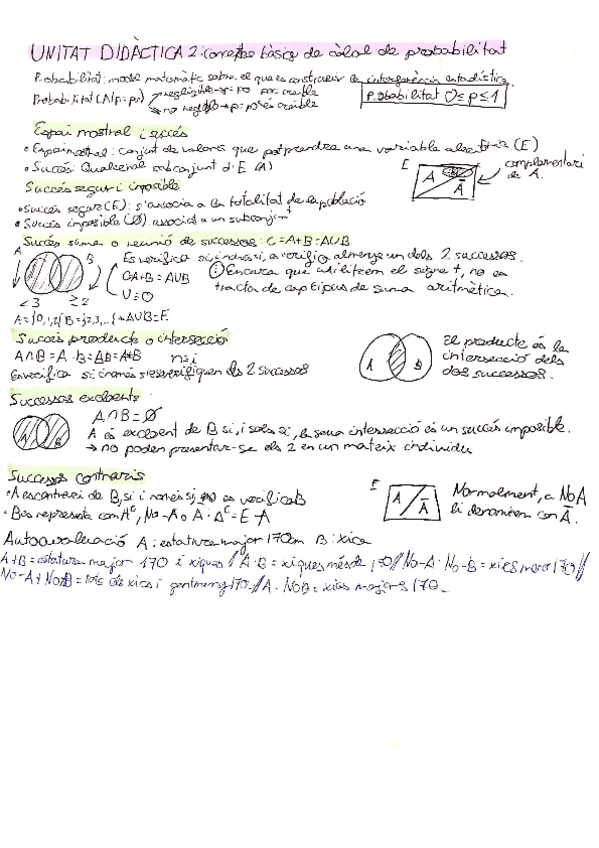 UNITAT DIDÀCTICA 2: conceptes bàsics de càlcul de probabilitat
Probabilitat: model matemàtic sobre el que es construeix la interferència estadística.
Probabilitat (A|p=p1) negligible → p: poc creïble
no neglible → p: poc creïble
Probabilitat 0≤p≤1
Espai mostral i succés
• Espai mostral: conjunt de valors que pot prendre una variable aleatòria (E)
• Succés: Qualsevol subconjunt d'E (A)
E A Ā
complementari de A.
Succés segur i imposible
• Succés segur (E): s'associa a la totalitat de la població
• Succés imposible (Ø): associat a un subconjunt
Succés suma o reunió de successos: C=A+B=A∪B
A B
Es verifica si, i només si, es verifica almenys un dels 2 successos.
A+B = A∪B
Encara que utilitzem el signe +, no es
U=O
tracta de cap tipus de suma aritmètica.
<3 ≥2
A={0,1,2} B={2,3,...} A∪B=E
Succés producte o intersecció
A∩B=A·B
n=i
Es verifica si i només si es verifiquen els 2 successos
A B
El producte és la
intersecció dels
dos successos.
Successos excloents
A∩B=Ø
A B
A és excloent de B si, i sols si, la seua intersecció és un succés imposible.
→ no poden presentar-se els 2 en un mateix individu
Successos contraris
• A es contrari de B, si i només si, no es verifica B
• Es representa con Aᶜ, No-A o Ā. Aᶜ=E-A
E A Ā
Normalment, a No A
li denominen con Ā.
Autoavaluació A: estatura major 170cm B: xica
A+B = estatura major 170 i xiques // A·B = xiques més de 170 // No-A·No-B = xics menor 170 //
No-A+No-B = tots els xics i gent menys 170 // A·NoB = xics majors 170.